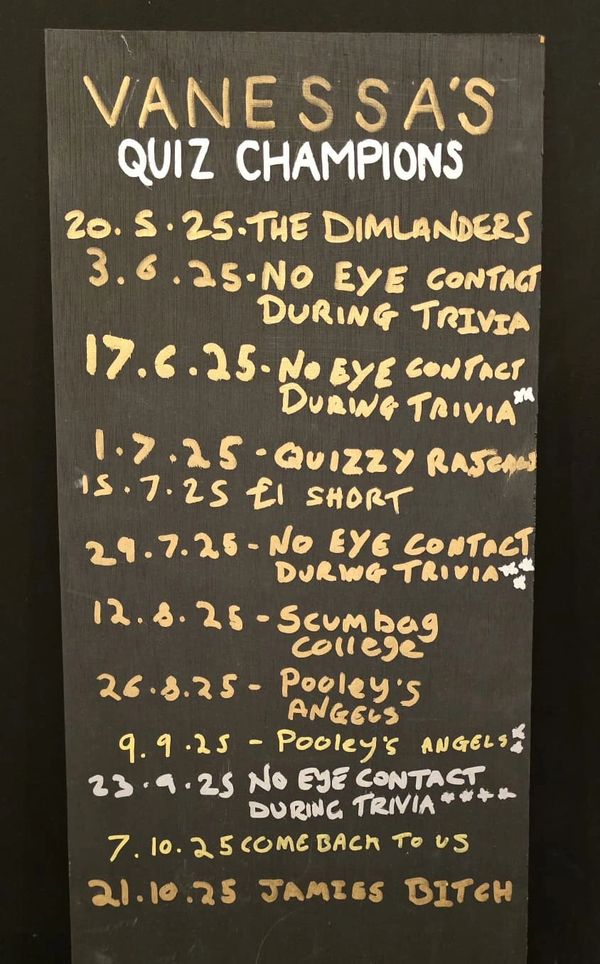 VANESSA'S
QUIZ CHAMPIONS
20.5.25. THE DIMLANDERS
3.6.25. NO EYE CONTACT
DURING TRIVIA
17.6.25. NO EYE CONTACT
DURING TRIVIA **
1.7.25 - QUIZZY RASCALS
15.7.25 £1 SHORT
29.7.25 - NO EYE CONTACT
DURING TRIVIA ***
12.8.25 - Scumbag
College
26.8.25 - Pooley's
ANGELS
9.9.25 - Pooley's ANGELS **
23.9.25 NO EYE CONTACT
DURING TRIVIA ****
7.10.25 COME BACK TO US
21.10.25 JAMIES BITCH